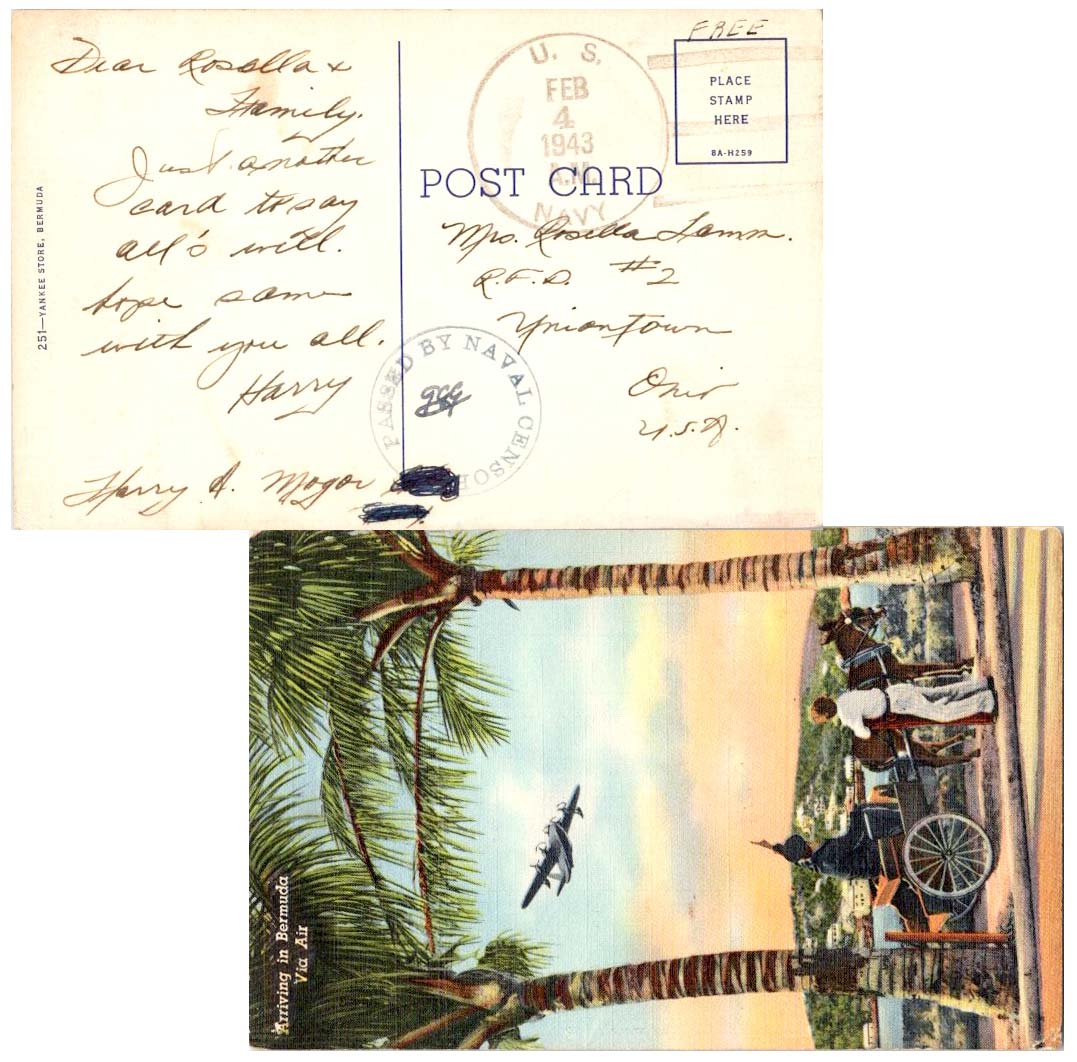 FREE
PLACE
STAMP
HERE
8A-H259
U. S.
FEB
4
1943
A.M.
NAVY
POST CARD
Dear Rosella &
Family.
Just another
card to say
all's well.
hope same
with you all.
Harry
Harry A. Mogor
Mrs. Rosella Lamm.
R.F.D. #2
Uniontown
Ohio
U.S.A.
PASSED BY NAVAL CENSOR
251—YANKEE STORE, BERMUDA
Arriving in Bermuda
Via Air